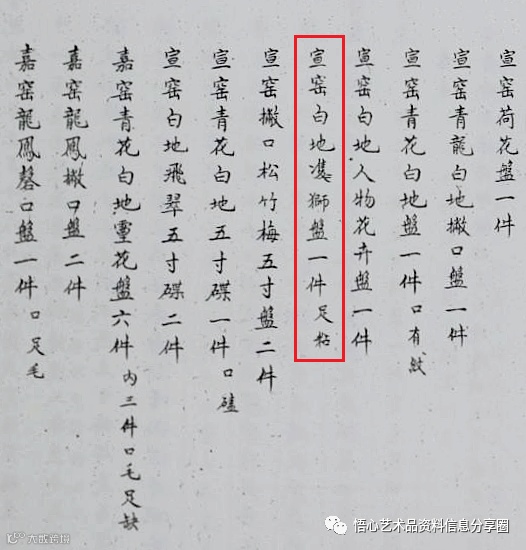 宣窑荷花盤一件
宣窑青龍白地撇口盤一件
宣窑青花白地盤一件口有紋
宣窑白地人物花卉盤一件
宣窑白地凄獅盤一件足粘
宣窑撇口松竹梅五寸盤二件
宣窑青花白地五寸碟一件口磕
宣窑白地飛翠五寸碟二件
嘉窑青花白地靈花盤六件内三件口毛足缺
嘉窑龍鳳撇口盤二件
嘉窑龍鳳磬口盤一件口足毛
悟心艺术品资料信息分享圈
大成跨境